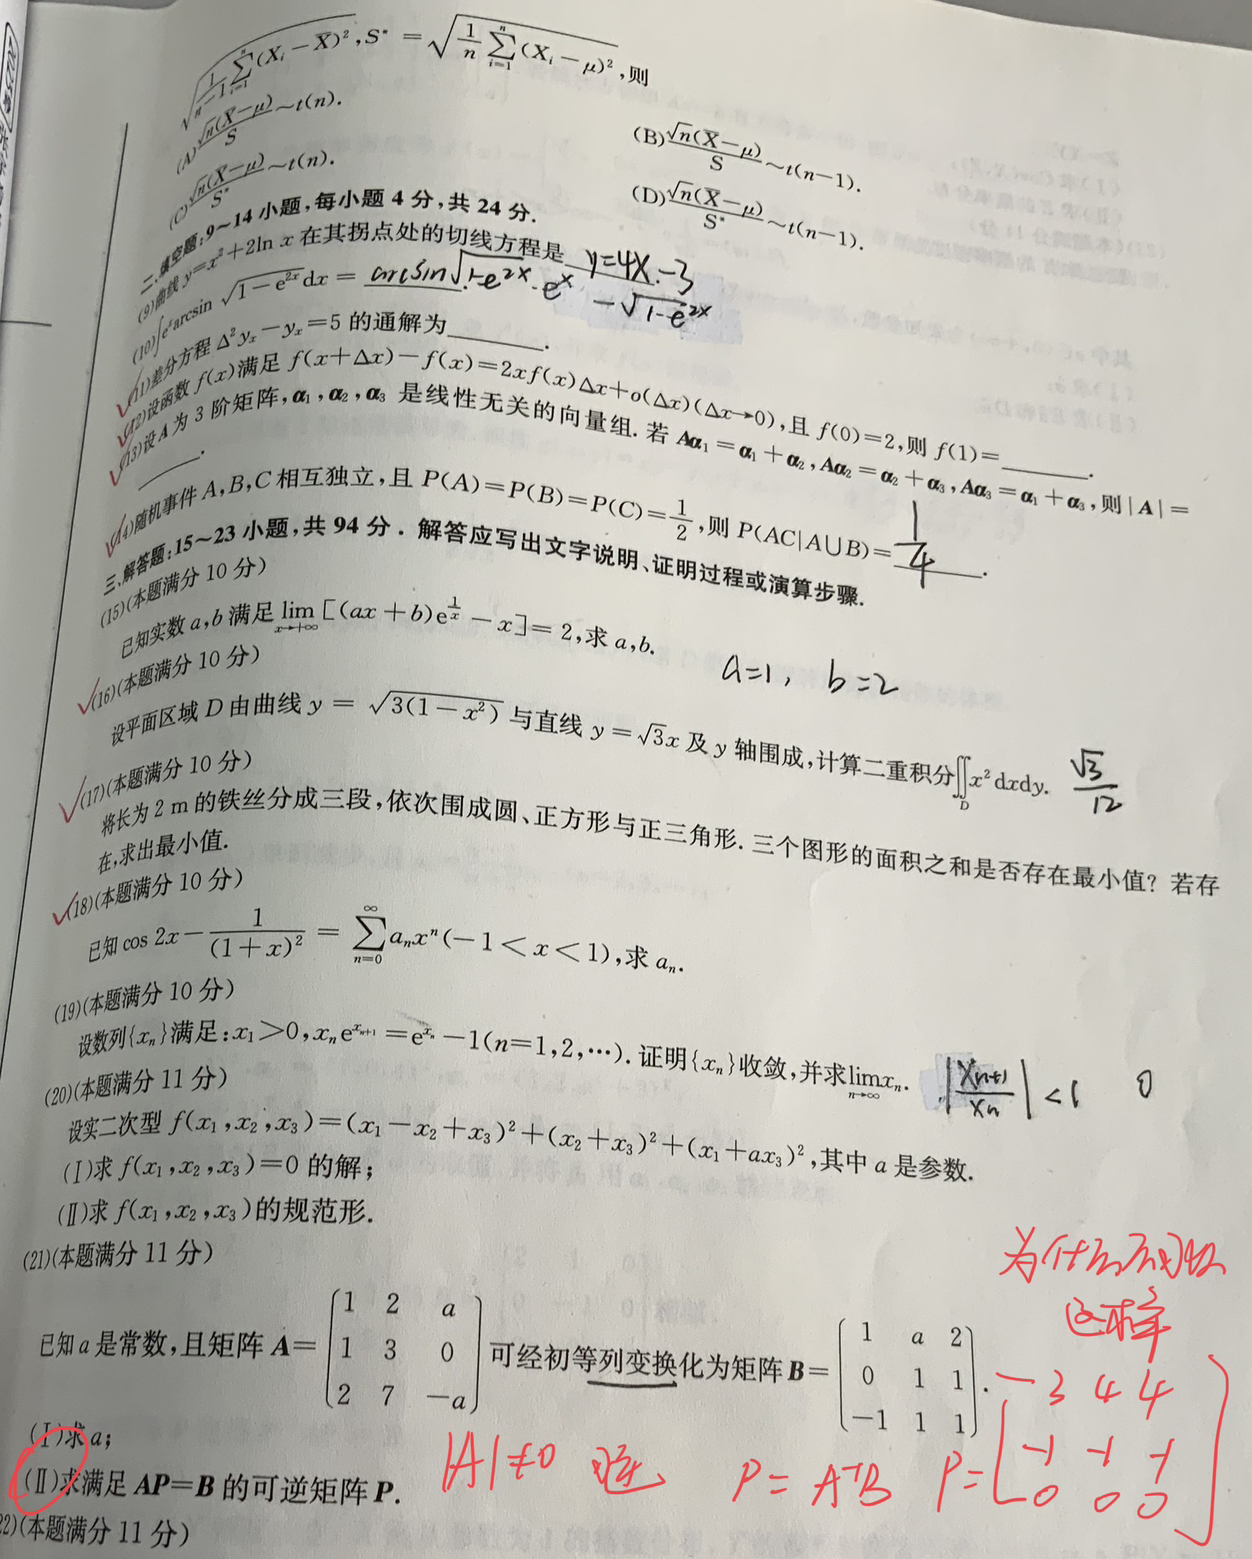 √(1/(n-1) ∑_{i=1}^{n}(X_i-X̄)²), S* = √(1/n ∑_{i=1}^{n}(X_i-μ)²), 则
(A) √n(X̄-μ)/S ~t(n). (B) √n(X̄-μ)/S ~t(n-1).
(C) √n(X̄-μ)/S* ~t(n). (D) √n(X̄-μ)/S* ~t(n-1).
二、填空题:9~14小题,每小题4分,共24分.
(9)曲线 y=x²+2ln x 在其拐点处的切线方程是 y=4x-3
(10)∫eˣarcsin √(1-e²ˣ)dx = arcsin√(1-e²ˣ)·eˣ -√(1-e²ˣ)
(11)差分方程 Δ²yₓ-yₓ=5 的通解为______.
(12)设函数 f(x)满足 f(x+Δx)-f(x)=2xf(x)Δx+o(Δx)(Δx→0),且 f(0)=2,则 f(1)=______.
(13)设A为3阶矩阵,α₁,α₂,α₃ 是线性无关的向量组.若 Aα₁=α₁+α₂,Aα₂=α₂+α₃,Aα₃=α₁+α₃,则|A|=
______.
(14)随机事件A,B,C相互独立,且P(A)=P(B)=P(C)=1/2,则P(AC|A∪B)= 1/4 .
三、解答题:15~23小题,共94分.解答应写出文字说明、证明过程或演算步骤.
(15)(本题满分10分)
已知实数a,b满足 lim_{x→+∞}[(ax+b)e^{1/x}-x]=2,求a,b.
a=1, b=2
(16)(本题满分10分)
设平面区域D由曲线 y=√(3(1-x²))与直线 y=√3x及y轴围成,计算二重积分∬_D x²dxdy. √3/12
(17)(本题满分10分)
将长为2 m的铁丝分成三段,依次围成圆、正方形与正三角形.三个图形的面积之和是否存在最小值?若存
在,求出最小值.
(18)(本题满分10分)
已知 cos 2x - 1/(1+x)² = ∑_{n=0}^{∞} aₙxⁿ(-1<x<1),求aₙ.
(19)(本题满分10分)
设数列{xₙ}满足:x₁>0,xₙe^{xₙ₊₁}=e^{xₙ}-1(n=1,2,…).证明{xₙ}收敛,并求lim_{n→∞}xₙ. |xₙ₊₁/xₙ|<1 0
(20)(本题满分11分)
设实二次型 f(x₁,x₂,x₃)=(x₁-x₂+x₃)²+(x₂+x₃)²+(x₁+ax₃)²,其中a是参数.
(Ⅰ)求 f(x₁,x₂,x₃)=0 的解;
(Ⅱ)求 f(x₁,x₂,x₃)的规范形.
(21)(本题满分11分)
为什么不可以
这样
已知a是常数,且矩阵A= [1 2 a; 1 3 0; 2 7 -a] 可经初等列变换化为矩阵B= [1 a 2; 0 1 1; -1 1 1].
(Ⅰ)求a;
(Ⅱ)求满足AP=B的可逆矩阵P.
|A|≠0 可逆 P=A⁻¹B P= [-3 4 4; -1 -1 -1; 0 0 0]
22)(本题满分11分)